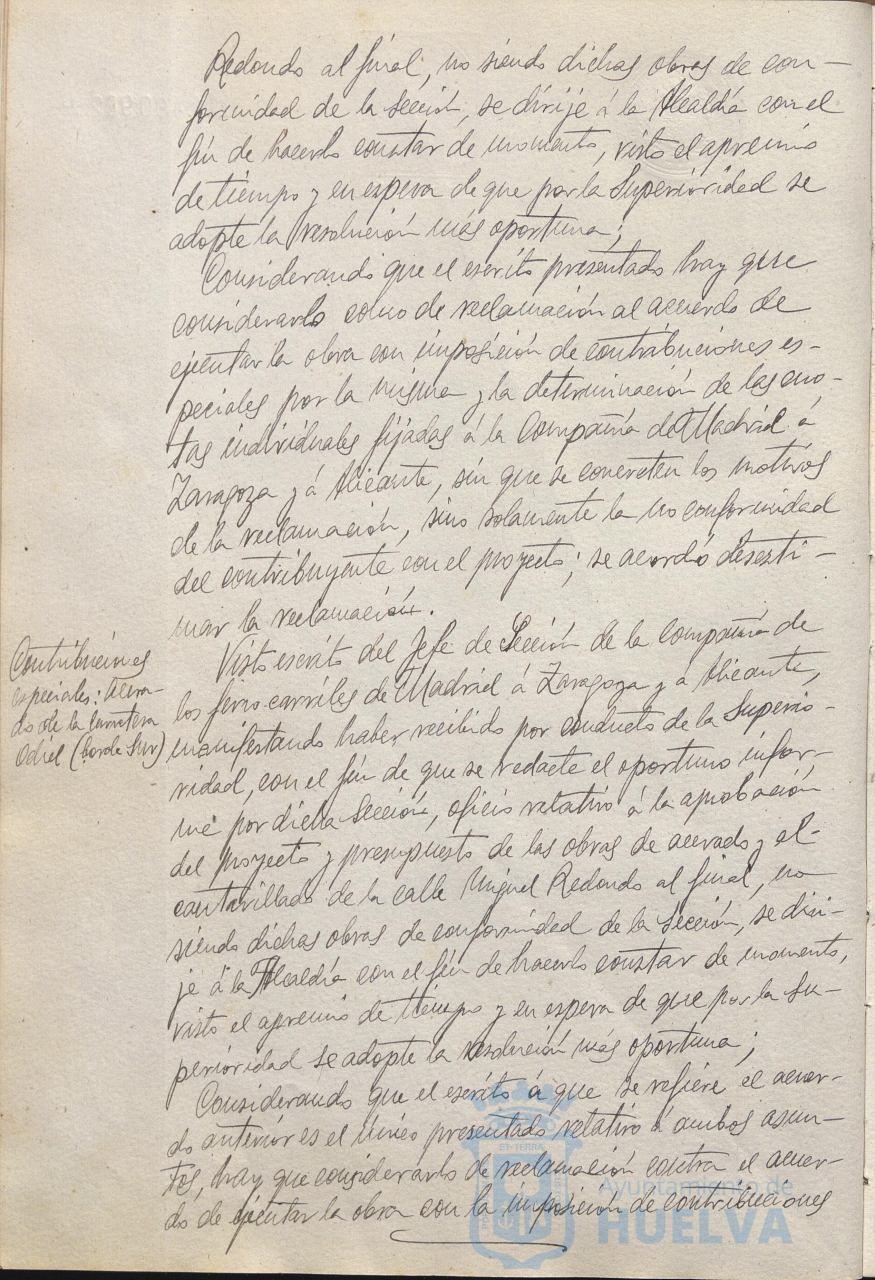 Redondo al final, no siendo dichas obras de con-
formidad de la Sección, se dirije á la Alcaldía con el
fin de hacerlo constar de momento, visto el apremio
de tiempo y en espera de que por la Superioridad se
adopte la resolución más oportuna;
Considerando que el escrito presentado hay que
considerarlo como de reclamación al acuerdo de
ejecutar la obra con imposición de contribuciones es-
peciales por la misma y la determinación de las cuo-
tas individuales fijadas á la Compañía de Madrid á
Zaragoza y á Alicante, sin que se concreten los motivos
de la reclamación, sino solamente la no conformidad
del contribuyente con el proyecto; se acordó desesti-
mar la reclamación.
Contribuciones
especiales: Acera-
do de la Carretera
Odiel (borde Sur)
Visto escrito del Jefe de Sección de la Compañía de
los ferrocarriles de Madrid á Zaragoza y a Alicante,
manifestando haber recibido por conducto de la Superio-
ridad, con el fin de que se redacte el oportuno infor-
me por dicha Sección, oficio relativo á la aprobación
del proyecto y presupuesto de las obras de acerado y al-
cantarillado de la calle Miguel Redondo al final, no
siendo dichas obras de conformidad de la Sección, se diri-
je á la Alcaldía con el fin de hacerlo constar de momento,
visto el apremio de tiempo y en espera de que por la Su-
perioridad se adopte la resolución más oportuna;
Considerando que el escrito á que se refiere el acuer-
do anterior es el único presentado relativo á ambos asun-
tos, hay que considerarlo de reclamación contra el acuer-
do de ejecutar la obra con la imposición de contribuciones
Ayuntamiento de
HUELVA